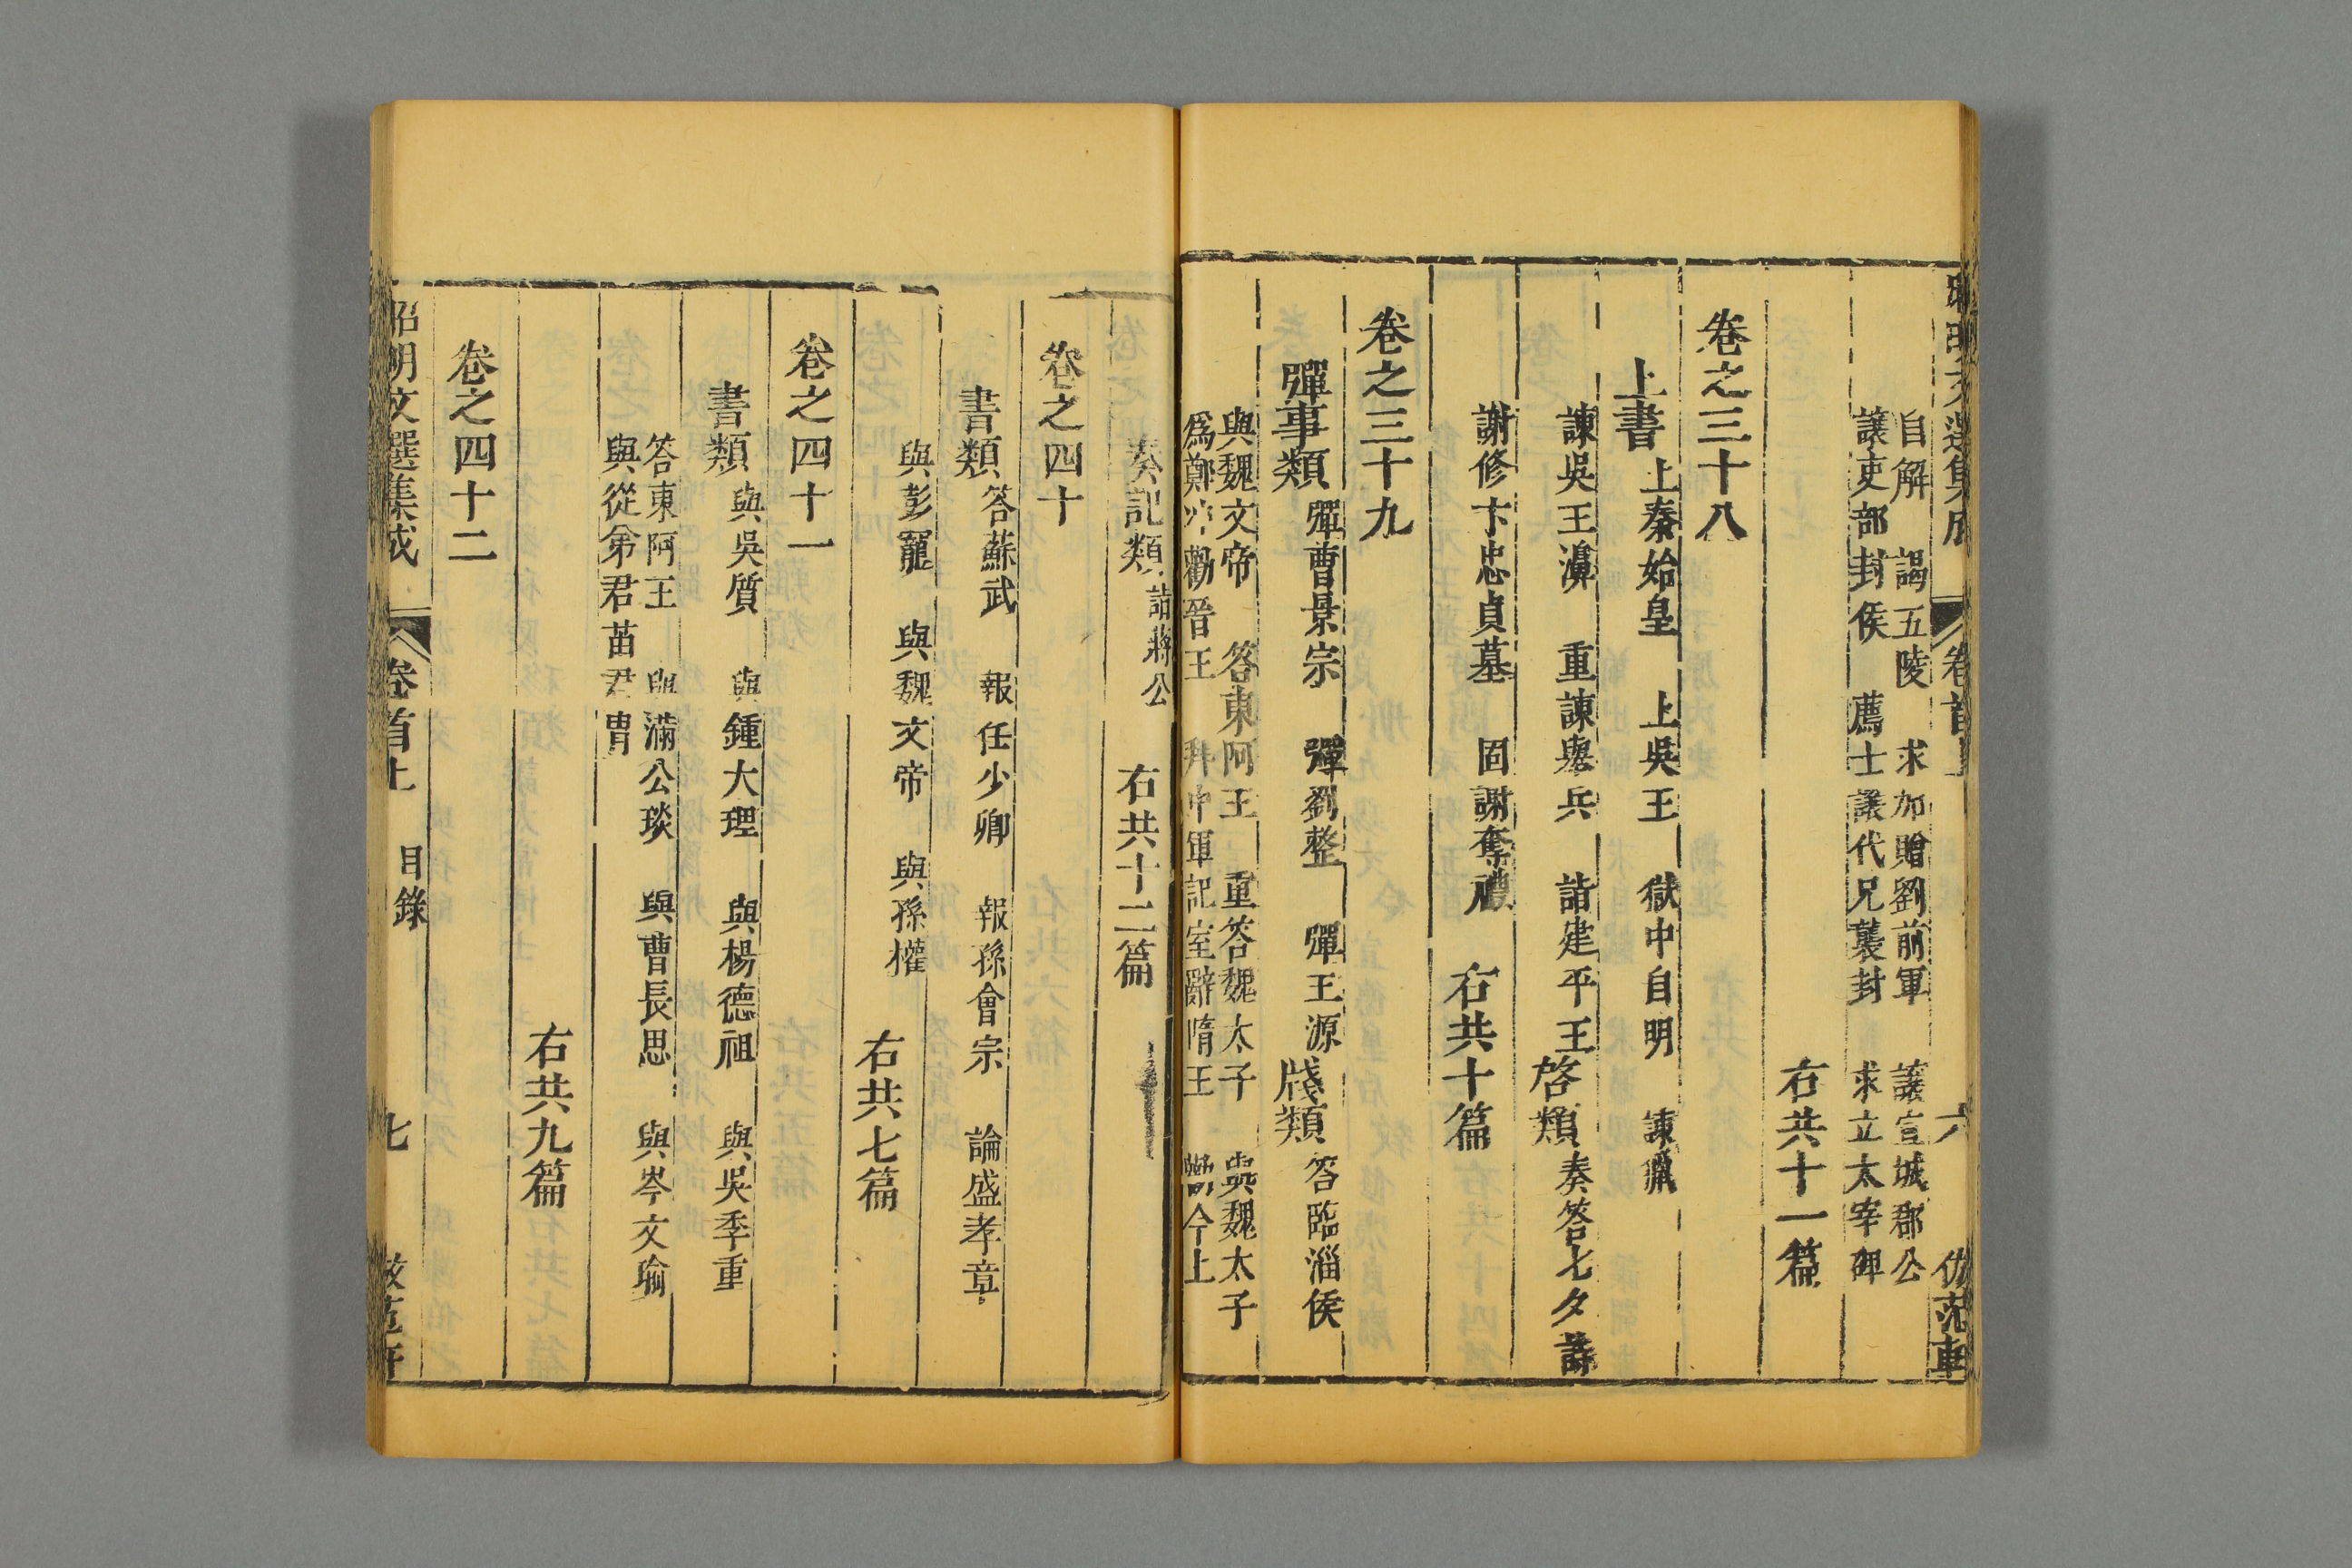 自解　謁五陵　求加贈劉前軍　讓宣城郡公
讓吏部封侯　薦士　讓代兄襲封　求立太宰碑
右共十一篇
卷之三十八
上書　上秦始皇　上吳王　獄中自明　諫獵
諫吳王濞　重諫舉兵　詣建平王　啓類　奏答七夕詩
謝修卞忠貞墓　固謝奪禮　右共十篇
卷之三十九
彈事類　彈曹景宗　彈劉整　彈王源　牋類　答臨淄侯
與魏文帝　答東阿王　重答魏太子　與魏太子
爲鄭沖勸晉王　拜中軍記室辭隋王　勸今上
奏記類　詣蔣公　右共十二篇
卷之四十
書類　答蘇武　報任少卿　報孫會宗　論盛孝章
與彭寵　與魏文帝　與孫權　右共七篇
卷之四十一
書類　與吳質　與鍾大理　與楊德祖　與吳季重
答東阿王　與滿公琰　與曹長思　與岑文瑜
與從弟君苗君冑
右共九篇
卷之四十二
昭明文選集成　卷首上　目錄　七